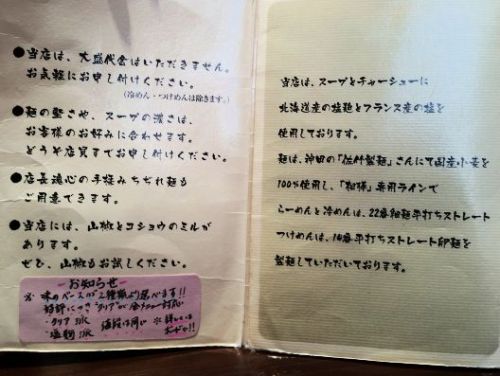 ●当店は、大盛代金はいただきません。
お気軽にお申し付けください。
(冷めん・つけめんは除きます。)
●麺の堅さや、スープの濃さは、
お客様のお好みに合わせます。
どうぞ店員までお申し付けください。
●店長渾心の手揉みちぢれ麺も
ご用意できます。
●当店には、山椒とコショウのミルが
あります。
ぜひ、山椒もお試しください。
お知らせ
※味のベースが2種類より選べます!!
好評につき"クリア"が全メニュー対応
・クリア 派 値段は同じ
・塩麹 派
当店は、スープとチャーシューに
北海道産の塩麹とフランス産の塩を
使用しております。
麺は、神田の「佐竹製麺」さんにて国産小麦を
100%使用し、「相様」専用ラインで
らーめんと冷めんは、22番細麺平打ちストレート
つけめんは、14番平打ちストレート卵麺を
製麺していただいております。